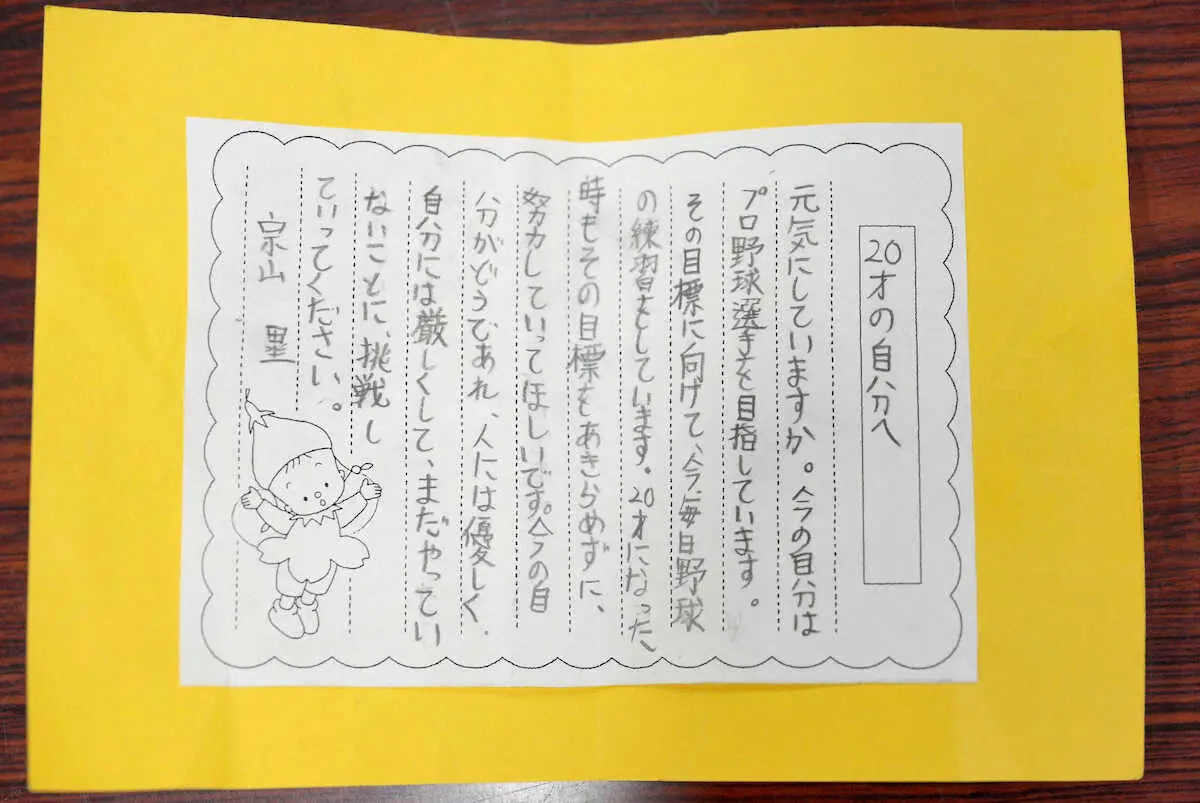 20才の自分へ
元気にしていますか。今の自分は
プロ野球選手を目指しています。
その目標に向けて、今、毎日野球
の練習をしています。20才になった
時もその目標をあきらめずに、
努力していってほしいです。今の自
分がどうであれ、人には優しく、
自分には厳しくして、まだやってい
ないことに、挑戦し
ていってください。
宗山 塁